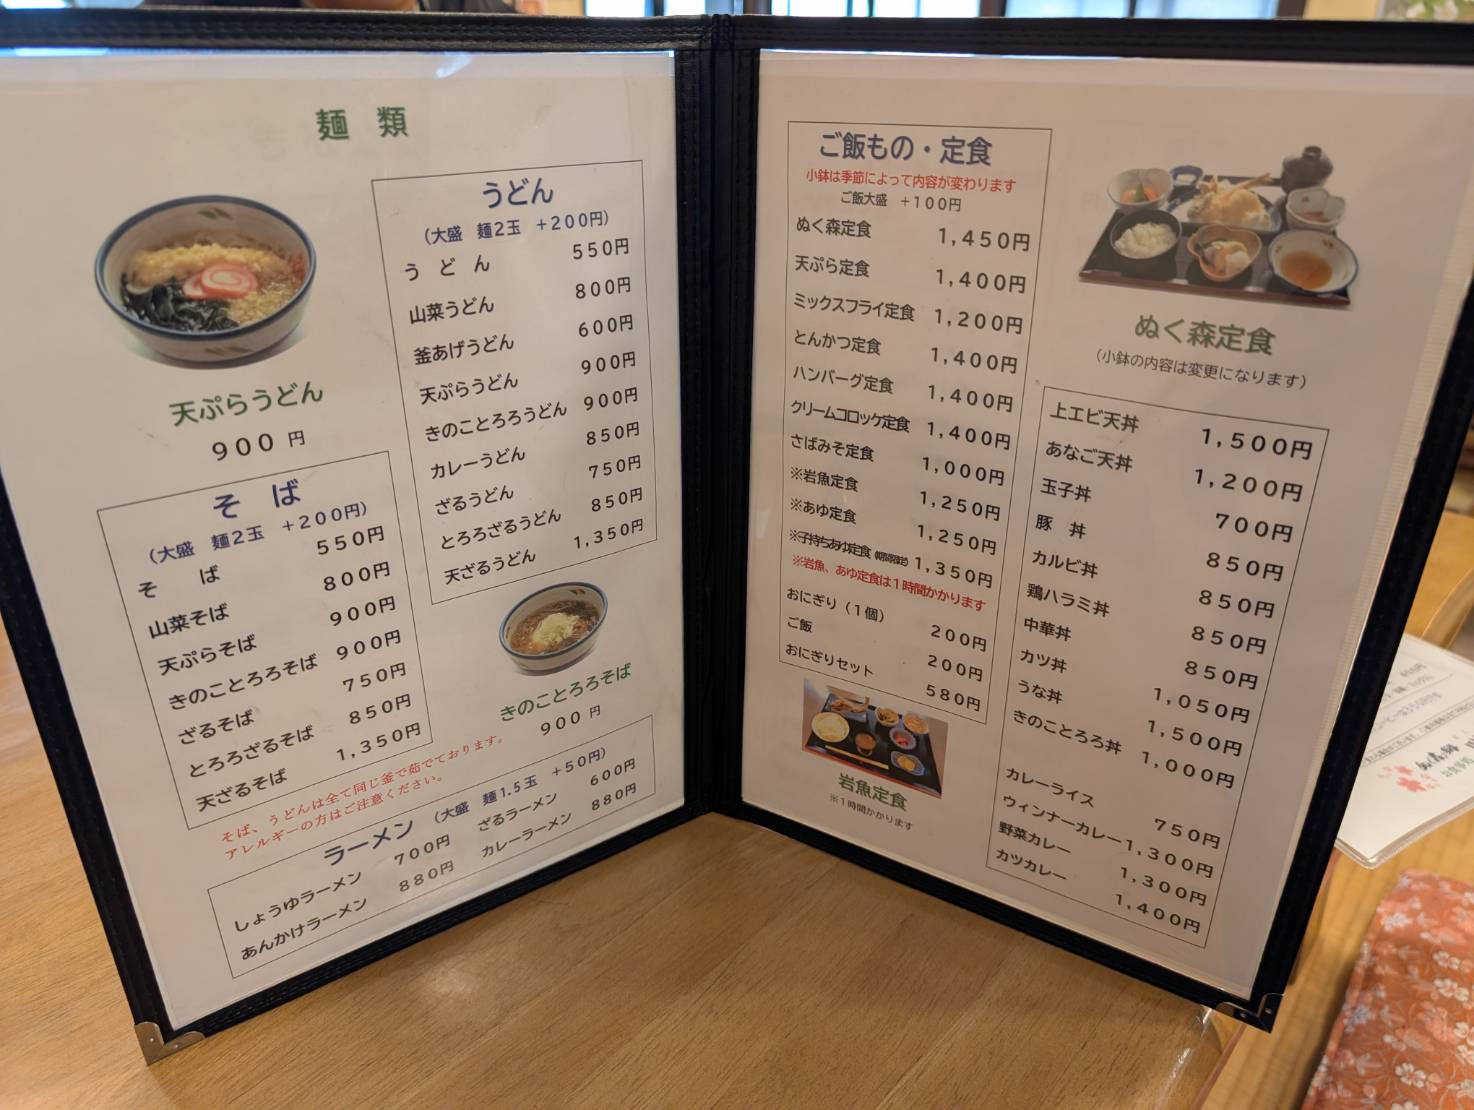 麺　類
天ぷらうどん
900 円
うどん
（大盛　麺2玉　+200円）
う　ど　ん　550円
山菜うどん　800円
釜あげうどん　600円
天ぷらうどん　900円
きのことろろうどん　900円
カレーうどん　850円
ざるうどん　750円
とろろざるうどん　850円
天ざるうどん　1,350円
そ　ば
（大盛　麺2玉　+200円）
そ　　ば　550円
山菜そば　800円
天ぷらそば　900円
きのことろろそば　900円
ざるそば　750円
とろろざるそば　850円
天ざるそば　1,350円
きのことろろそば
900 円
そば、うどんは全て同じ釜で茹でております。
アレルギーの方はご注意ください。
ラーメン　（大盛　麺1.5玉　+50円）
しょうゆラーメン　700円　ざるラーメン　600円
あんかけラーメン　880円　カレーラーメン　880円
ご飯もの・定食
小鉢は季節によって内容が変わります
ご飯大盛　+100円
ぬく森定食　1,450円
天ぷら定食　1,400円
ミックスフライ定食　1,200円
とんかつ定食　1,400円
ハンバーグ定食　1,400円
クリームコロッケ定食　1,400円
さばみそ定食　1,000円
※岩魚定食　1,250円
※あゆ定食　1,250円
※子持ちあゆ定食　1,350円
※岩魚、あゆ定食は1時間かかります
おにぎり（1個）　200円
ご飯　200円
おにぎりセット　580円
岩魚定食
※1時間かかります
ぬく森定食
（小鉢の内容は変更になります）
上エビ天丼　1,500円
あなご天丼　1,200円
玉子丼　700円
豚　丼　850円
カルビ丼　850円
鶏ハラミ丼　850円
中華丼　850円
カツ丼　1,050円
うな丼　1,500円
きのことろろ丼　1,000円
カレーライス　750円
ウィンナーカレー　1,300円
野菜カレー　1,300円
カツカレー　1,400円